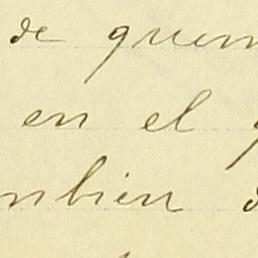 de quem
en el
mbien